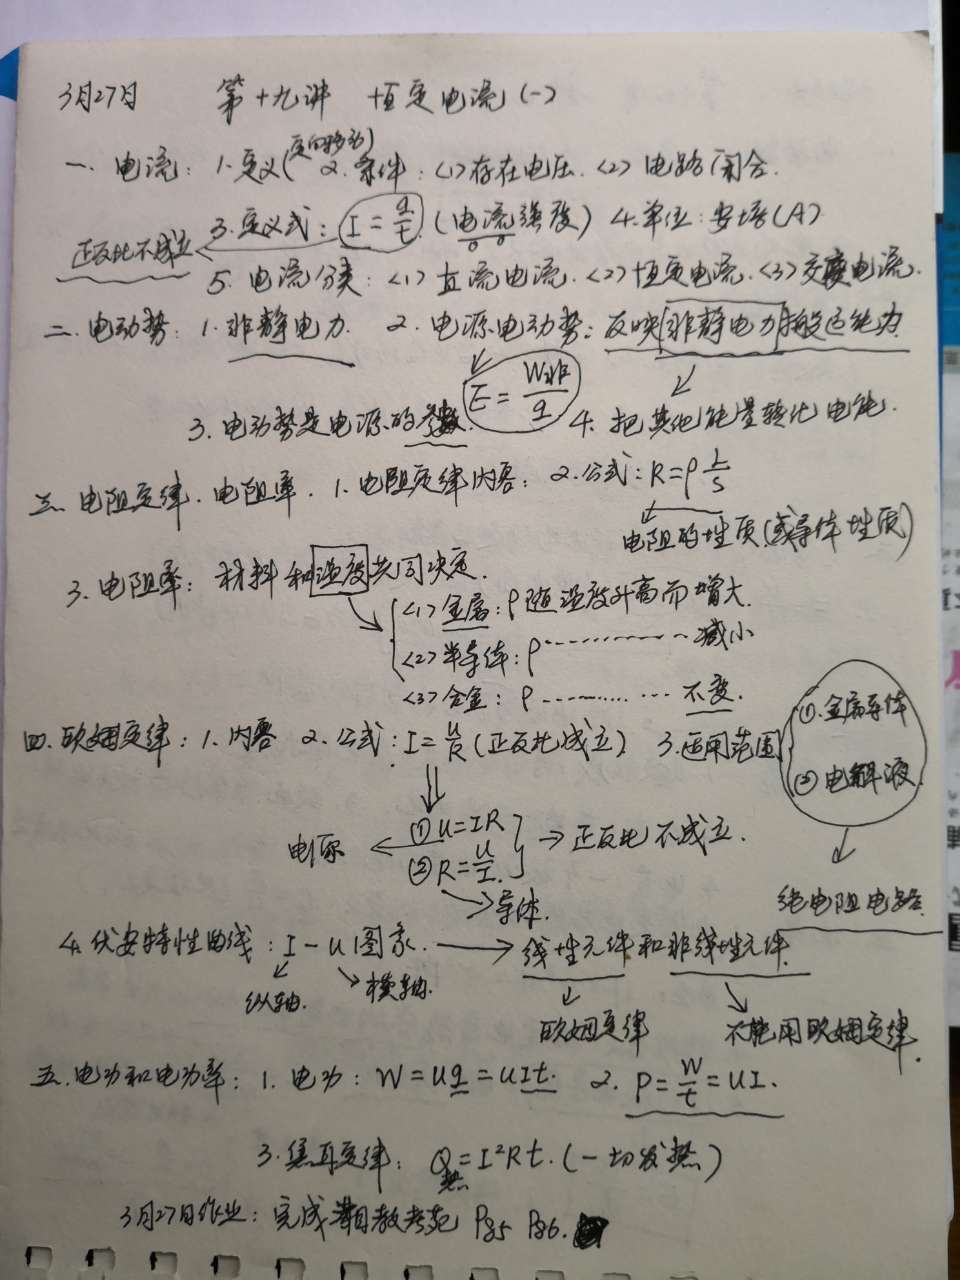 3月27日 第十九讲 恒定电流(一)
一、电流: 1.定义(定向移动) 2.条件:<1>存在电压.<2>电路闭合.
3.定义式: I=q/t (电流强度) 4.单位:安培(A)
正反比不成立
5.电流分类:<1>直流电流.<2>恒定电流.<3>交变电流.
二、电动势: 1.非静电力 2.电源电动势:反映非静电力搬运能力
E=W非/q
3.电动势是电源的参数. 4.把其他能量转化电能.
三、电阻定律.电阻率. 1.电阻定律内容: 2.公式:R=ρL/S
电阻的性质(或导体性质)
3.电阻率: 材料和温度共同决定.
<1>金属:ρ随温度升高而增大.
<2>半导体:ρ-----------减小
<3>合金:ρ------------不变.
四.欧姆定律: 1.内容 2.公式:I=U/R(正反比成立) 3.适用范围
①.金属导体
② 电解液
①U=IR
电源 → 正反比不成立.
②R=U/I.
导体.
纯电阻电路
4.伏安特性曲线:I-U图象. → 线性元件和非线性元件.
纵轴. 横轴.
欧姆定律 不能用欧姆定律.
五.电功和电功率: 1.电功: W=Uq=UIt. 2. P=W/t=UI.
3.焦耳定律: Q热=I²Rt.(一切发热)
3月27日作业: 完成 教考苑 P85 P86.